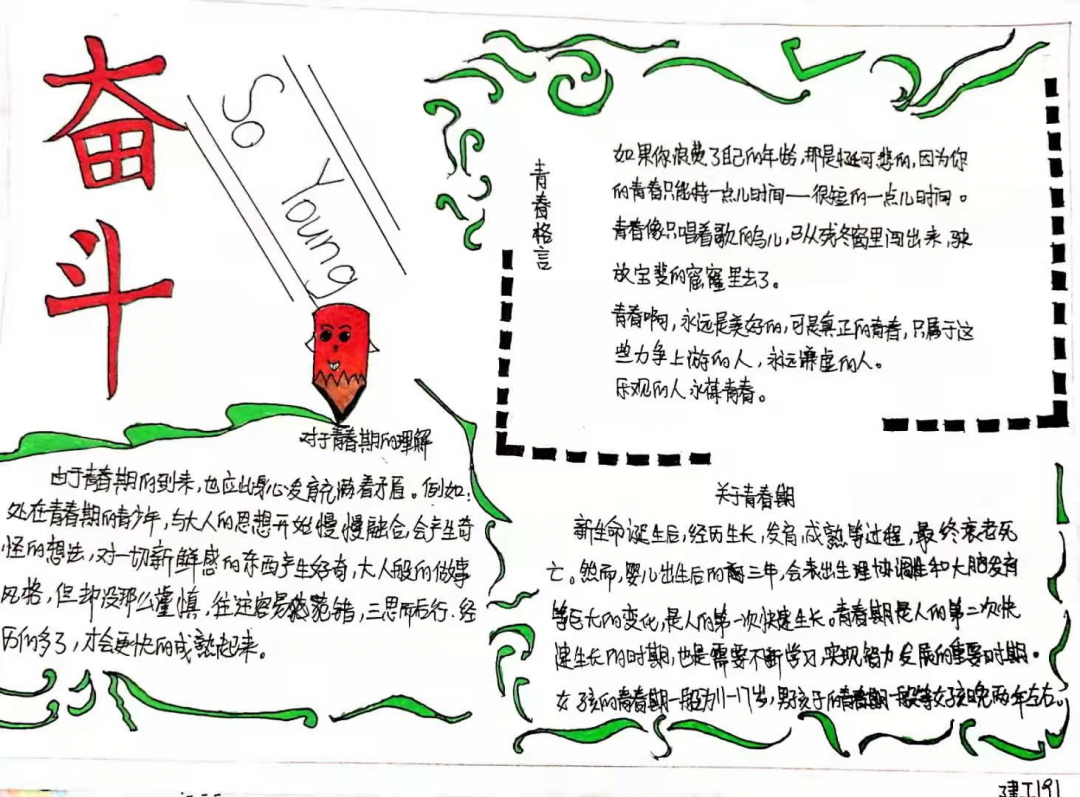 奋斗
So Young
青春格言
如果你浪费了自己的年龄,那是挺可悲的,因为你
的青春只能持一点儿时间——很短的一点儿时间。
青春像只唱着歌的鸟儿,已从残冬窗里闯出来,驶
放宝蓝的窟窿里去了。
青春啊,永远是美好的,可是真正的青春,只属于这
些力争上游的人,永远谦虚的人。
乐观的人永葆青春。
对于青春期的理解
由于青春期的到来,也应此身心发育充满着矛盾。例如:
处在青春期的青少年,与大人的思想开始慢慢融合,会产生奇
怪的想法,对一切新鲜感的东西产生好奇,大人般的做事
风格,但却没那么谨慎,往往容易犯错,三思而后行.经
历的多了,才会更快的成熟起来。
关于青春期
新生命诞生后,经历生长,发育,成熟等过程,最终衰老死
亡。然而,婴儿出生后的三年,会表出生理协调性和大脑发育
等巨大的变化,是人的第一次快速生长。青春期是人的第二次快
速生长的时期,也是需要不断学习,实现智力发展的重要时期。
女孩的青春期一般为11-17岁,男孩子的青春期一般等女孩晚两年左右。
建工191